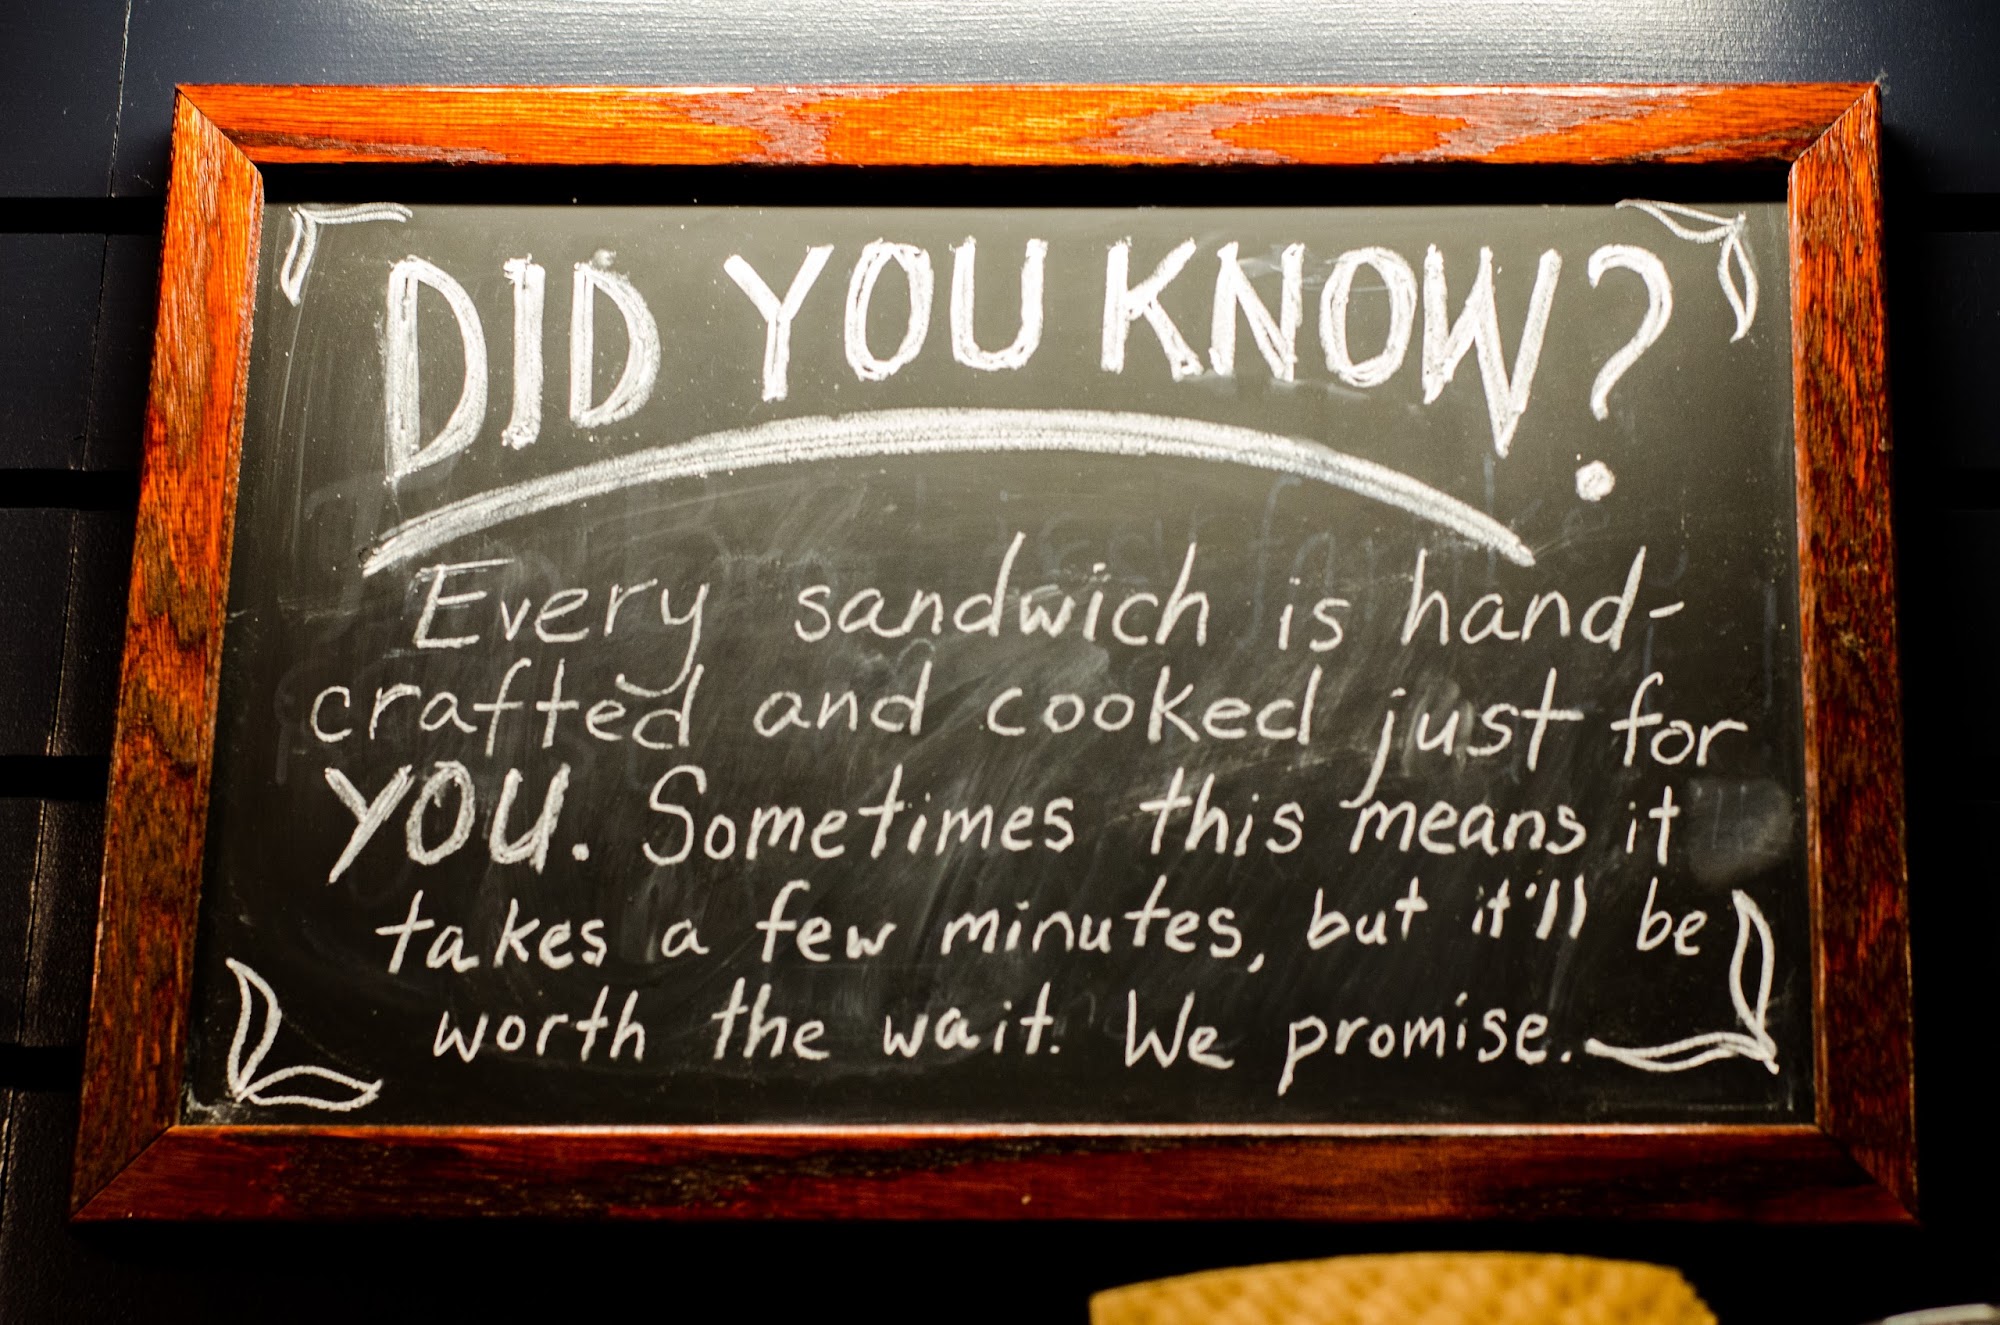 DID YOU KNOW?
Every sandwich is hand-
crafted and cooked just for
YOU. Sometimes this means it
takes a few minutes, but it'll be
worth the wait. We promise.